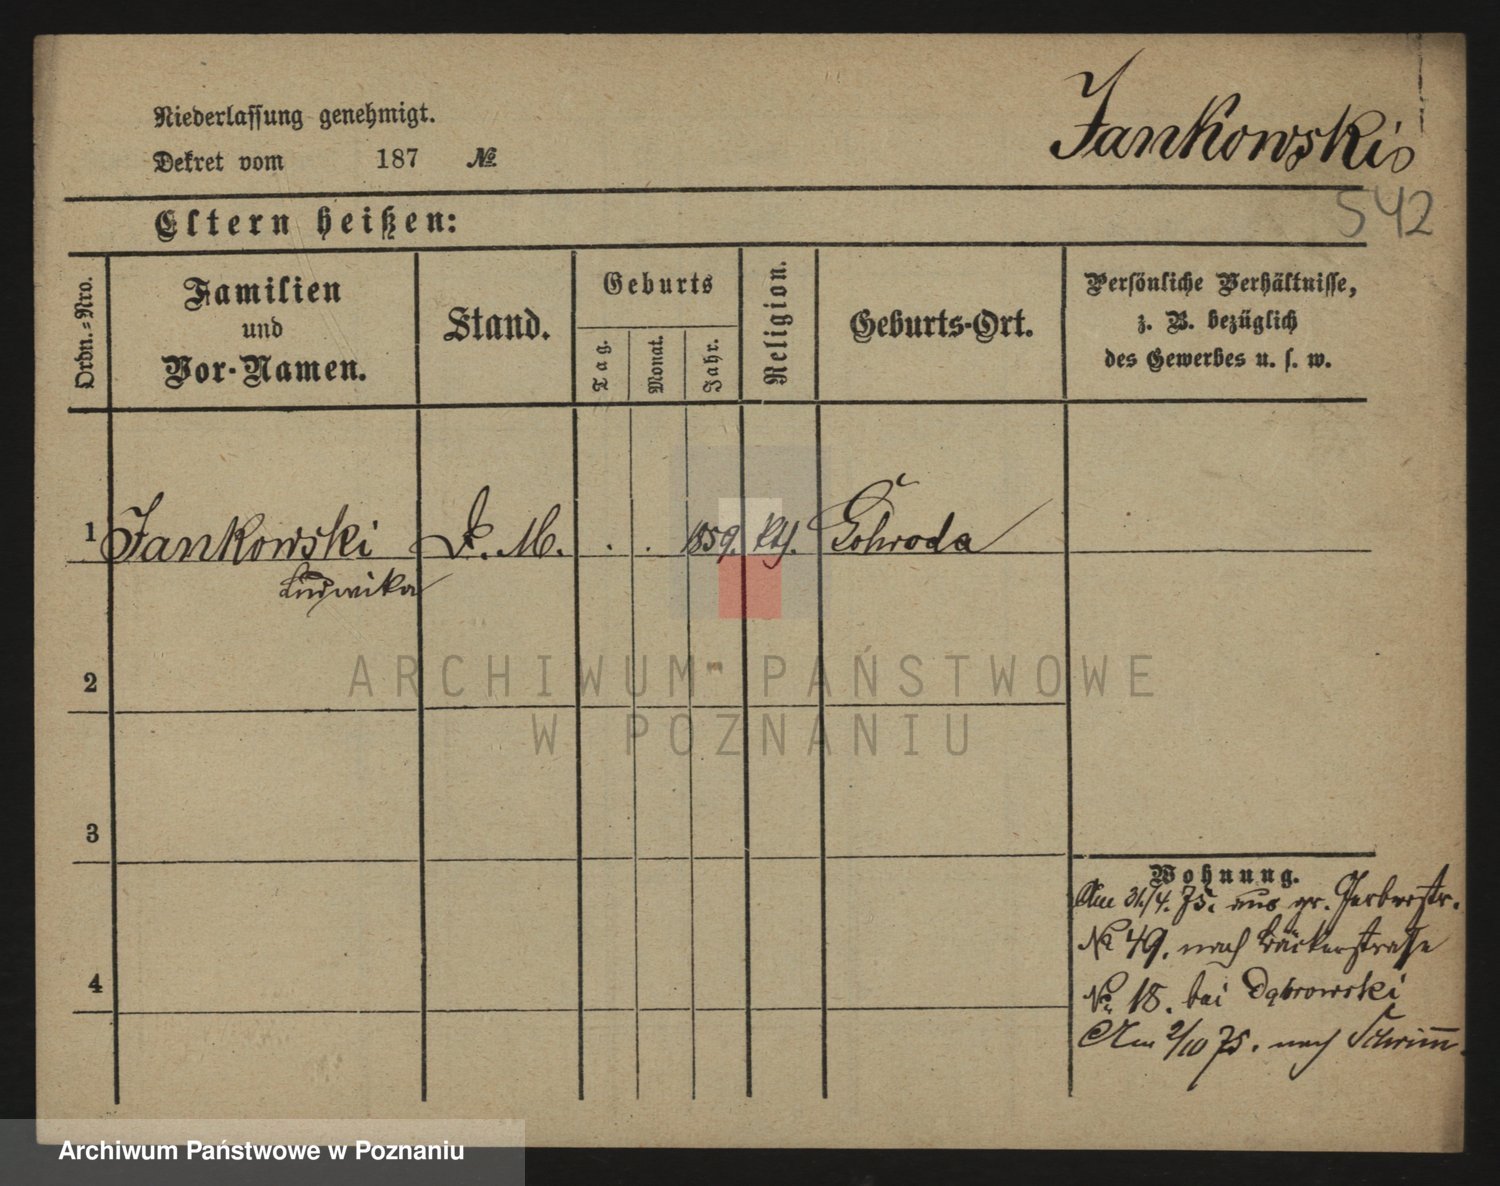 Niederlassung genehmigt.
Dekret vom 187 №
Jankowski
542
Eltern heißen:
Ordn.=Nro.
Familien
und
Vor-Namen.
Stand.
Geburts
Tag.
Monat.
Jahr.
Religion.
Geburts-Ort.
Persönliche Verhältnisse,
z. B. bezüglich
des Gewerbes u. s. w.
1 Jankowski D. M. . . 1859. kth.
Ludwika
2
3
4
Wohnung.
Am 31/4. 75. aus gr. Gerberstr.
№ 49. nach Bäckerstraße
№ 18. bei Dąbrowski
Am 2/10 75. nach Schrimm.
ARCHIWUM PAŃSTWOWE
W POZNANIU
Archiwum Państwowe w Poznaniu